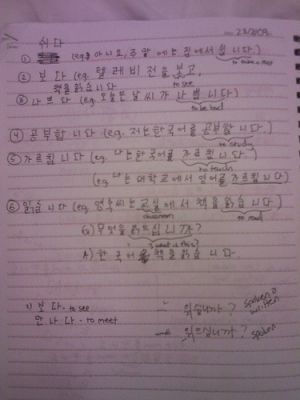 쉬다
① (eg. 아니요, 주말에는 집에서 쉽니다.)
to take a rest
② 보다 (eg. 텔레비전을 보고,
책을 읽습니다
to see
③ 나쁘다 (eg. 오늘은 날씨가 나쁩니다)
to be bad
④ 공부합니다 (eg. 저는 한국어를 공부합니다.)
to study
⑤ 가르칩니다 (eg. 나는 한국어를 가르칩니다)
to teach
(eg. 나는 대학교에서 영어를 가르칩니다)
⑥ 읽습니다 (eg. 영수씨는 교실에서 책을 읽습니다)
classroom to read
Q) 무엇을 읽으십니까?
(what is this)
A) 한국어 책을 읽습니다
1) 보다 - to see
만나다 - to meet
읽습니까? spoken & written
읽으십니까? spoken